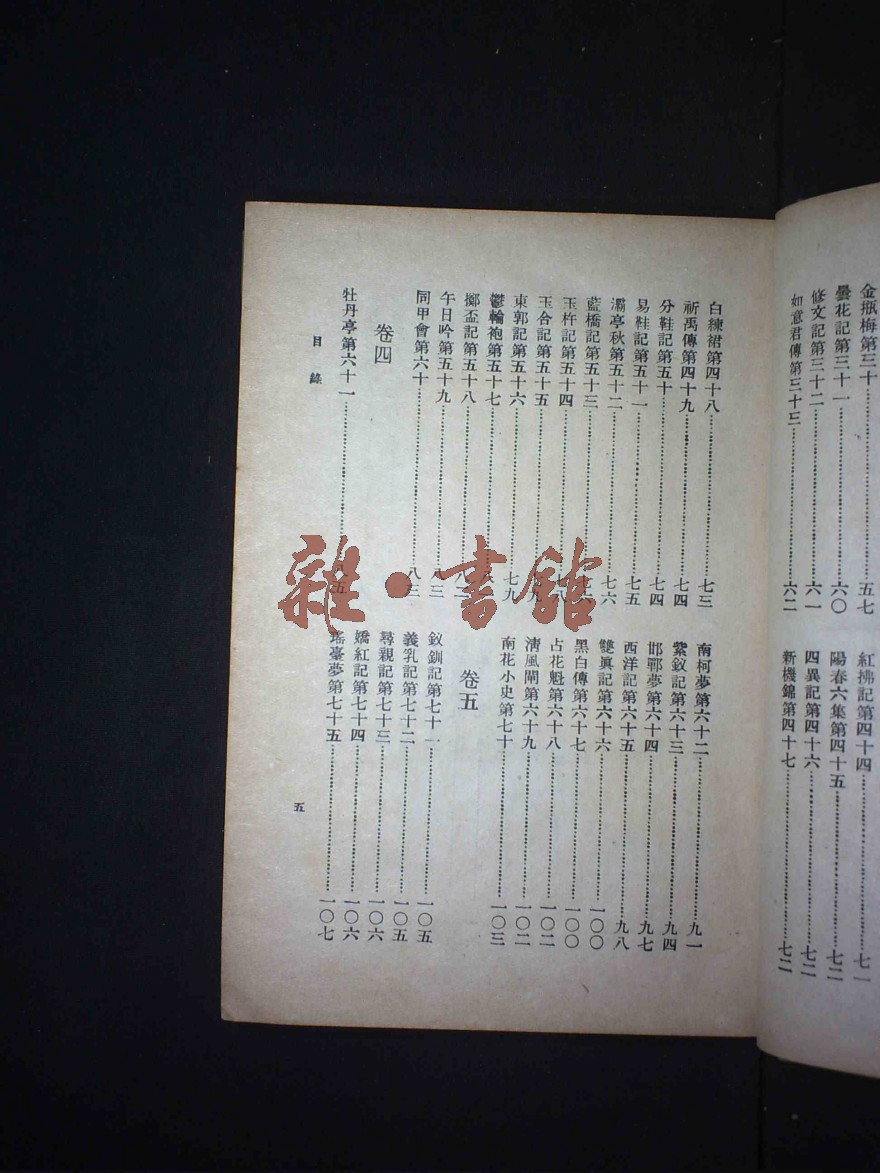 金瓶梅第三十……五七
曇花記第三十一……六〇
修文記第三十二……六一
如意君傳第三十三……六二
紅拂記第四十四……七一
陽春六集第四十五……七二
四異記第四十六……七二
新機錦第四十七……七二
白練裙第四十八……七三
祈禹傳第四十九……七四
分鞋記第五十……七四
易鞋記第五十一……七五
灞亭秋第五十二……七六
藍橋記第五十三……七六
玉杵記第五十四……七八
玉合記第五十五……七九
東郭記第五十六……七九
鬱輪袍第五十七……八
擲盃記第五十八……八二
午日吟第五十九……八三
同甲會第六十……八三
卷四
牡丹亭第六十一……八五
南柯夢第六十二……九一
紫釵記第六十三……九四
邯鄲夢第六十四……九七
西洋記第六十五……九八
雙眞記第六十六……一〇〇
黑白傳第六十七……一〇〇
占花魁第六十八……一〇二
淸風閘第六十九……一〇二
南花小史第七十……一〇三
卷五
釵釧記第七十一……一〇五
義乳記第七十二……一〇五
尋親記第七十三……一〇六
嬌紅記第七十四……一〇六
瑤臺夢第七十五……一〇七
目錄
五
雜·書館